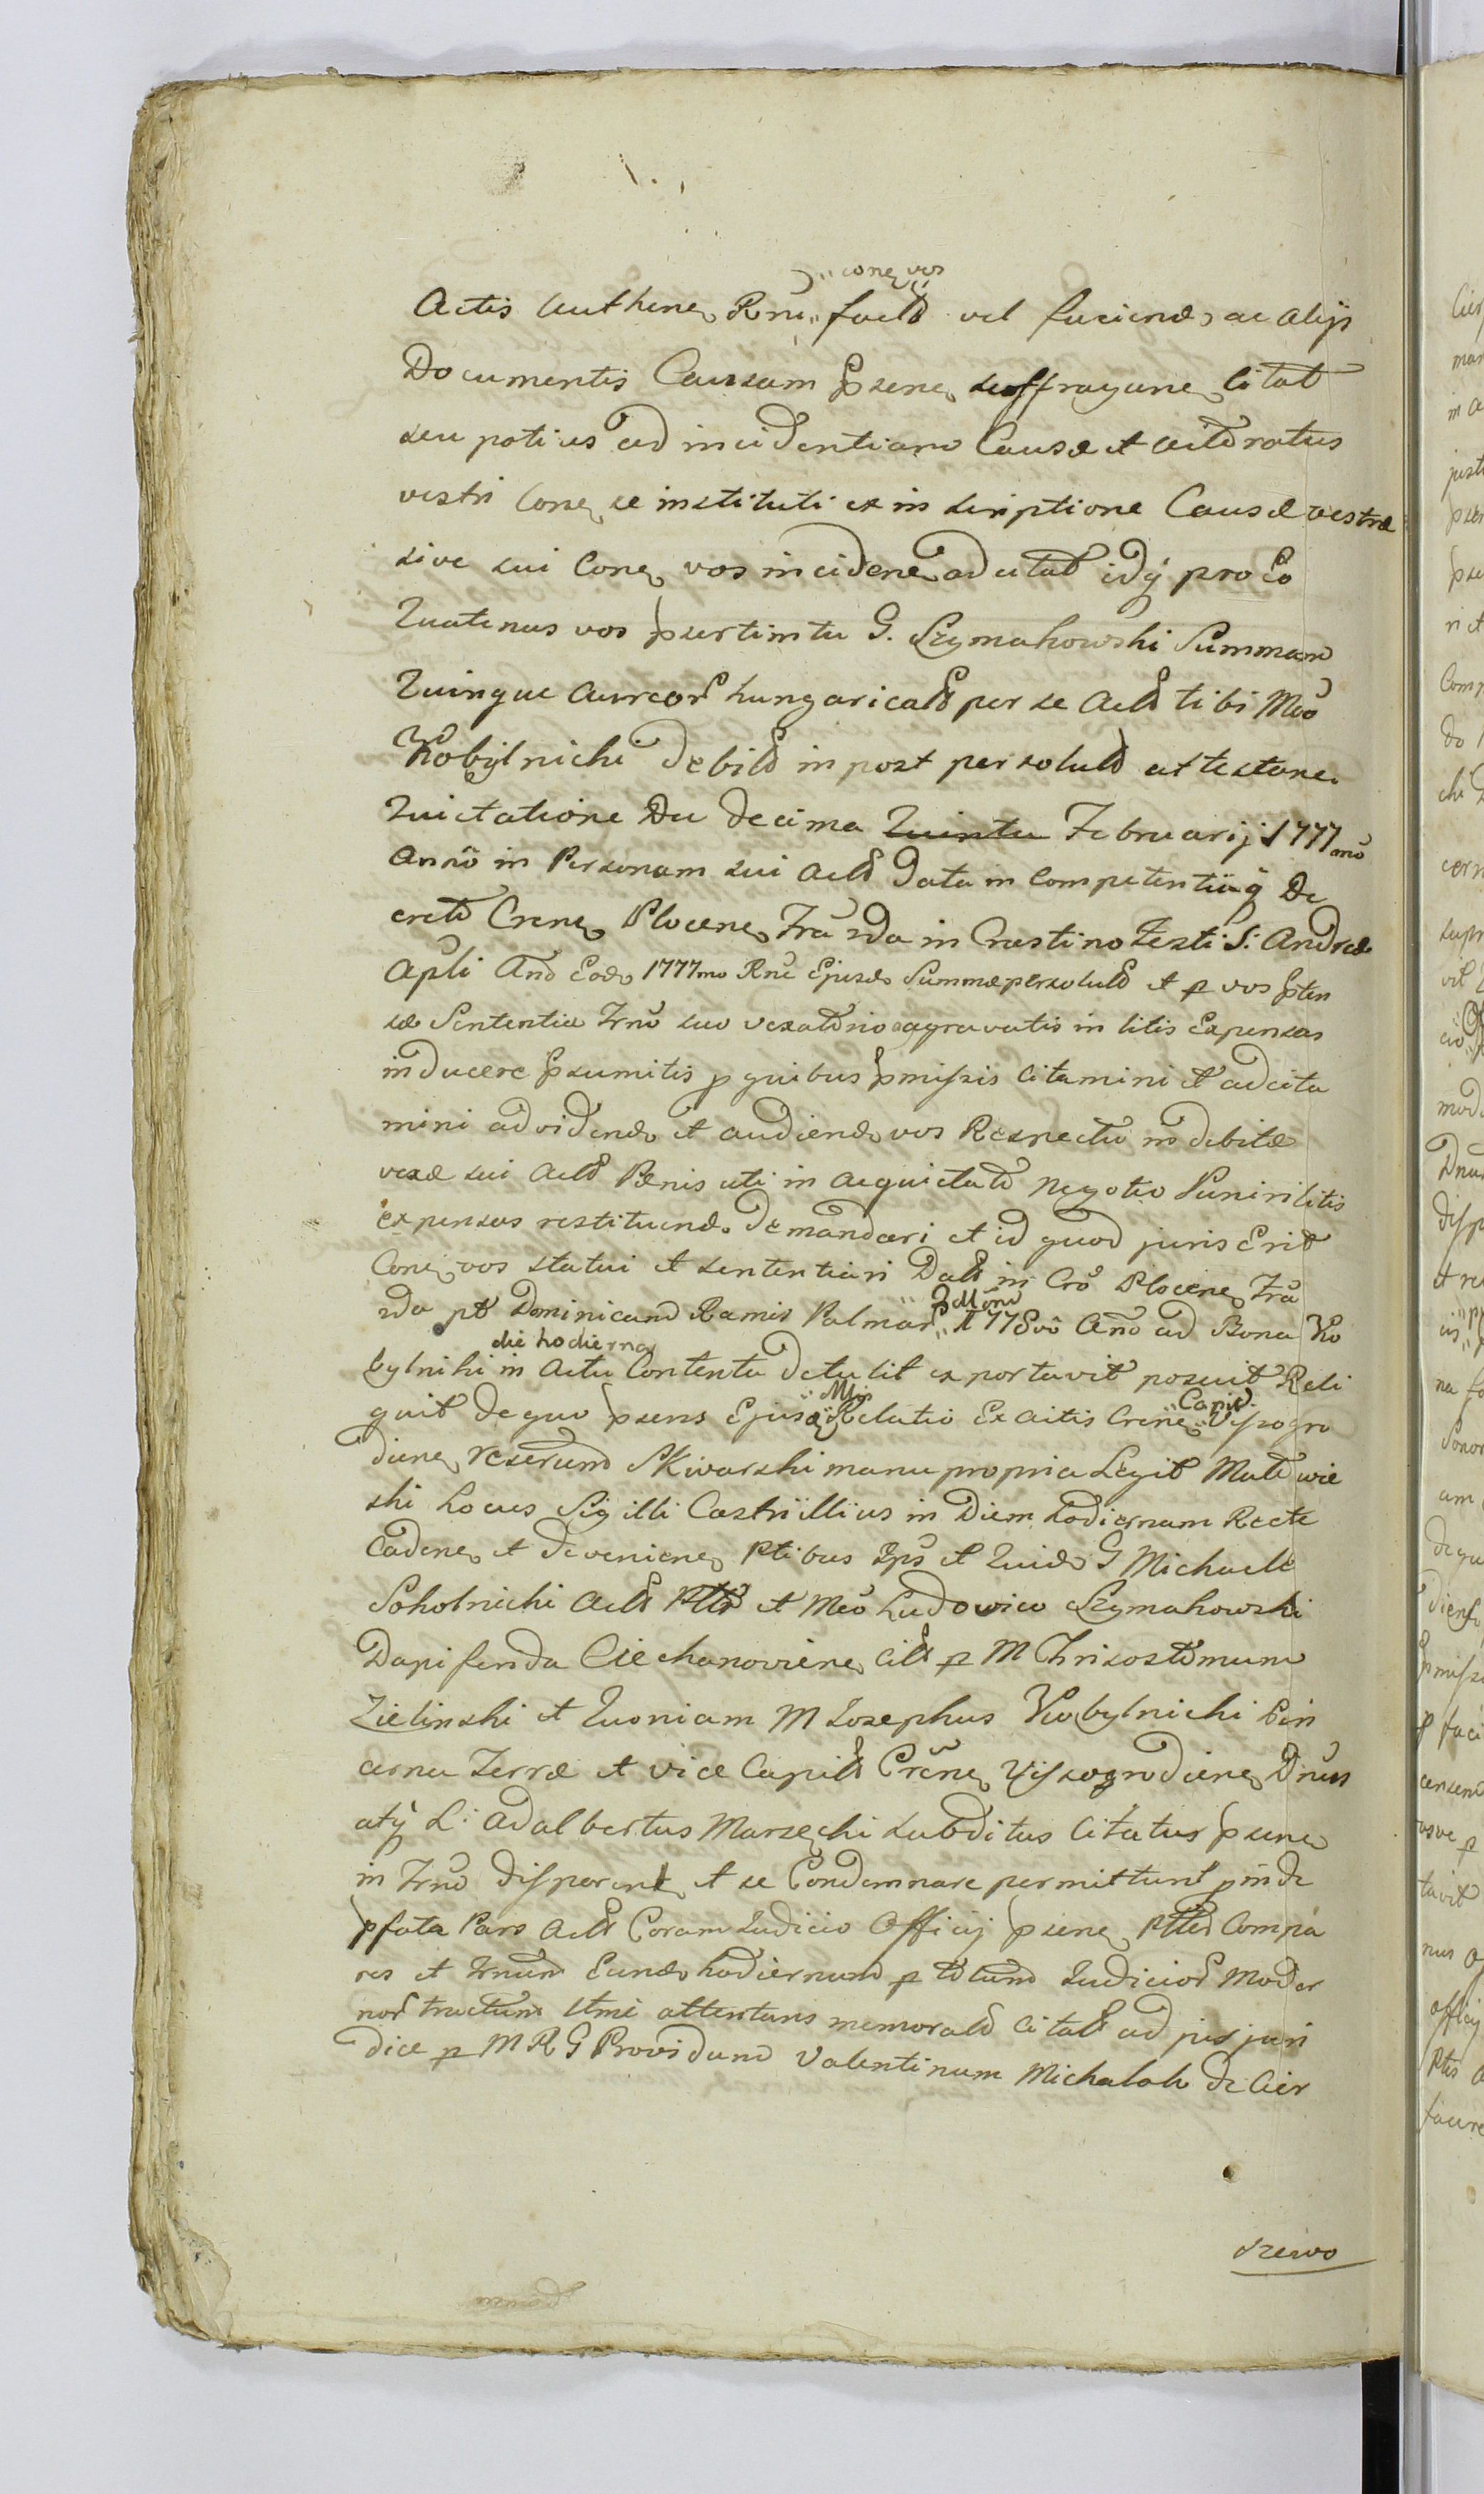 cone vos
Actis Authene Rnu fact vel faciend ac alijs
Documentis Causam psene suffragane Citat
seu potius ad incidentiam Causæ et actoratus
vestri Cone se instituti ex in scriptione Causæ vestræ
sive sui Cone vos incidene adcitat idq pro Eo
Quatenus vos psertim tu G. Szymakowski Summam
Quinque aureor hungarical per se Act tibi Mco
Kobylnicki debit in post persolut attestane
Quietatione Du decima Quinta Februarij 1777mo
Anno in Personam sui Act data in Competentiïq De
creto Crene Plocene Fra 2da in Crastino Festi S: Andreæ
Apli Ano Eod 1777mo Rnu Ejusd Summæ persolut et p vos pten
sæ Sententiæ Trno suo vexatorio aggravatis in litis Expensas
inducere psumitis p quibus pmissis Citamini et adcita
mini ad vidend et audiend vos Respectu indebitæ
vexæ sui Act Pænis uti in acquietato negotio Puniri litis
expensas restituend demandari et id quod juris Erit
Cone vos statui et sententiari Dat in Cro Plocene Fra
2da pt Dominicam Ramis Palmar 1778vo Ano ad Bona Ko
die hodierna
bylniki in Actu Contenta detulit exportavit posuit Reli
quit de quo psens Ejusd Relatio Ex actis Crene Capit Vissogro
diene reserum Skwarski manu propria Legit Matuwie
ski Locus Sigilli Castri illius in Diem hodiernam Recte
Cadene et deveniene Ptibus Ips et Quid G Michaele
Sokolnicki Act Ptte et Mco Ludovico Szymakowski
Dapiferida Ciechanoviene Cit p M Chrisostomum
Zielinski et Quoniam M Josephus Kobylnicki Pin
cerna Terræ et vice Capit Crene Vissogrodiene Dnus
atq L: Adalbertus Marsechi subditus Citatus psene
in Trno disparent et se Condemnare permittunt pinde
pfata Pars Act Coram Judicio Officij psene Ptter Compa
res et Trnum Eund hodiernum p totum Judicior Moder
nor tractum Ltme attentans memorat Citat ad jus juri
dice p M R G Providum Valentinum Michalak de Cier
szewo